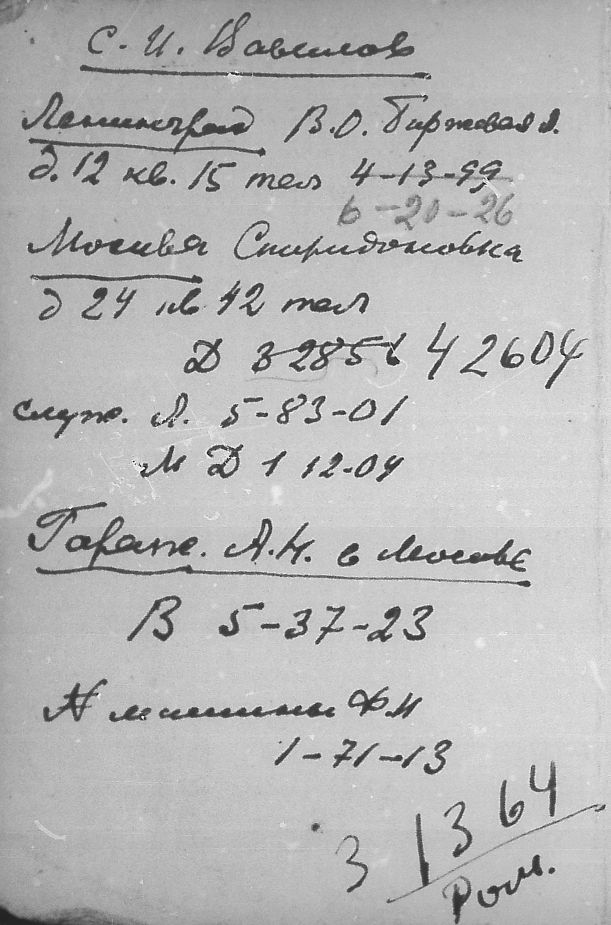 С. И. Вавилов
Ленинград В.О. Биржевая л.
д. 12 кв. 15 тел 4-13-99
6-20-26
Москва Спиридоновка
д 24 кв 12 тел
Д 3 285 6 4 26 04
служ. Л. 5-83-01
М Д 1 12-04
Гараж. А.Н. в Москве
В 5-37-23
№ машины
1-71-13
3 1364